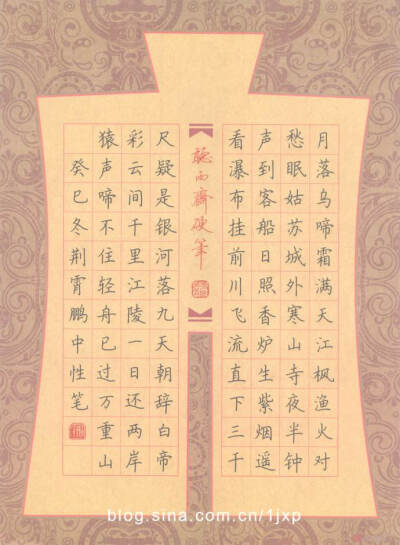 月落乌啼霜满天江枫渔火对
愁眠姑苏城外寒山寺夜半钟
声到客船日照香炉生紫烟遥
看瀑布挂前川飞流直下三千
聽雨齋硬筆
尺疑是银河落九天朝辞白帝
彩云间千里江陵一日还两岸
猿声啼不住轻舟已过万重山
癸巳冬荆霄鹏中性笔
blog.sina.com.cn/1jxp